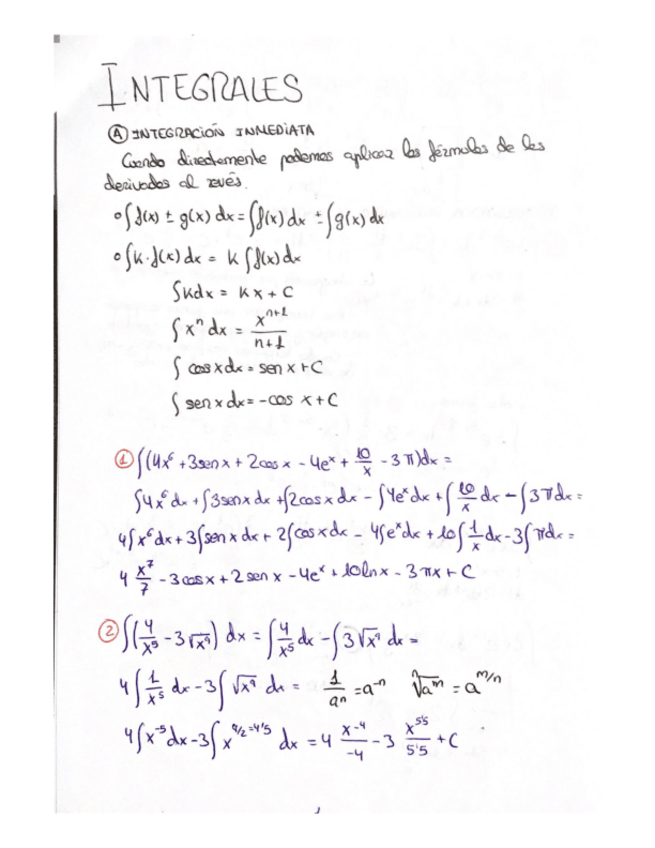 INTEGRALES
Ⓐ INTEGRACIÓN INMEDIATA
Cuando directamente podemos aplicar las fórmulas de las
derivadas al revés.
∘ ∫ f(x) ± g(x) dx = ∫ f(x) dx ± ∫ g(x) dx
∘ ∫ k·f(x) dx = k ∫ f(x) dx
∫ k dx = kx + C
∫ xⁿ dx = xⁿ⁺¹/(n+1)
∫ cos x dx = sen x + C
∫ sen x dx = -cos x + C
① ∫(4x⁶ + 3sen x + 2cos x - 4eˣ + 10/x - 3π)dx =
∫4x⁶ dx + ∫3sen x dx + ∫2cos x dx - ∫4eˣ dx + ∫ 10/x dx - ∫3π dx =
4∫x⁶ dx + 3∫sen x dx + 2∫cos x dx - 4∫eˣ dx + 10∫ 1/x dx - 3∫π dx =
4 x⁷/7 - 3cos x + 2 sen x - 4eˣ + 10 ln x - 3πx + C
② ∫(4/x⁵ - 3√x⁹) dx = ∫ 4/x⁵ dx - ∫ 3√x⁹ dx =
4∫ 1/x⁵ dx - 3∫ √x⁹ dx = 1/aⁿ = a⁻ⁿ ⁿ√aᵐ = a^(m/n)
4∫x⁻⁵ dx - 3∫ x^(9/2=4'5) dx = 4 x⁻⁴/-4 - 3 x^(5'5)/5'5 + C